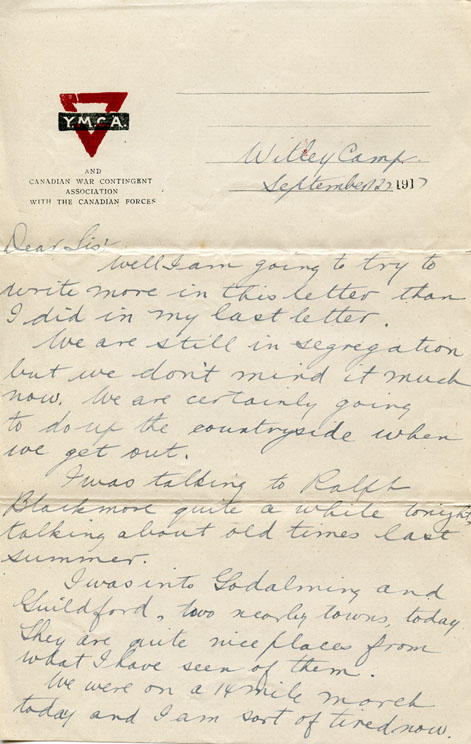 Y.M.C.A.
AND
CANADIAN WAR CONTINGENT
ASSOCIATION
WITH THE CANADIAN FORCES
Witley Camp
September 22 1917
Dear Sis:
Well I am going to try to
write more in this letter than
I did in my last letter.
We are still in segregation
but we don't mind it much
now. We are certainly going
to do up the countryside when
we get out.
I was talking to Ralph
Blackmore quite a while tonight,
talking about old times last
summer.
I was into Godalming and
Guildford, two nearby towns, today.
They are quite nice places from
what I have seen of them.
We were on a 14 mile march
today and I am sort of tired now.